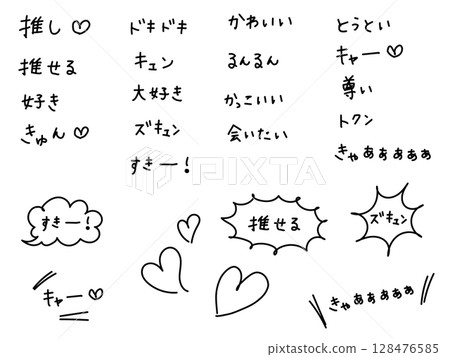 推し♡
推せる
好き
きゅん♡
ドキドキ
キュン
大好き
ズキュン
すきー!
かわいい
るんるん
かっこいい
会いたい
とうとい
キャー♡
尊い
トクン
きゃぁぁぁぁぁ
すきー!
推せる
ズキュン
キャー♡
きゃぁぁぁぁぁ
PIXTA
pixta.jp - 128476585